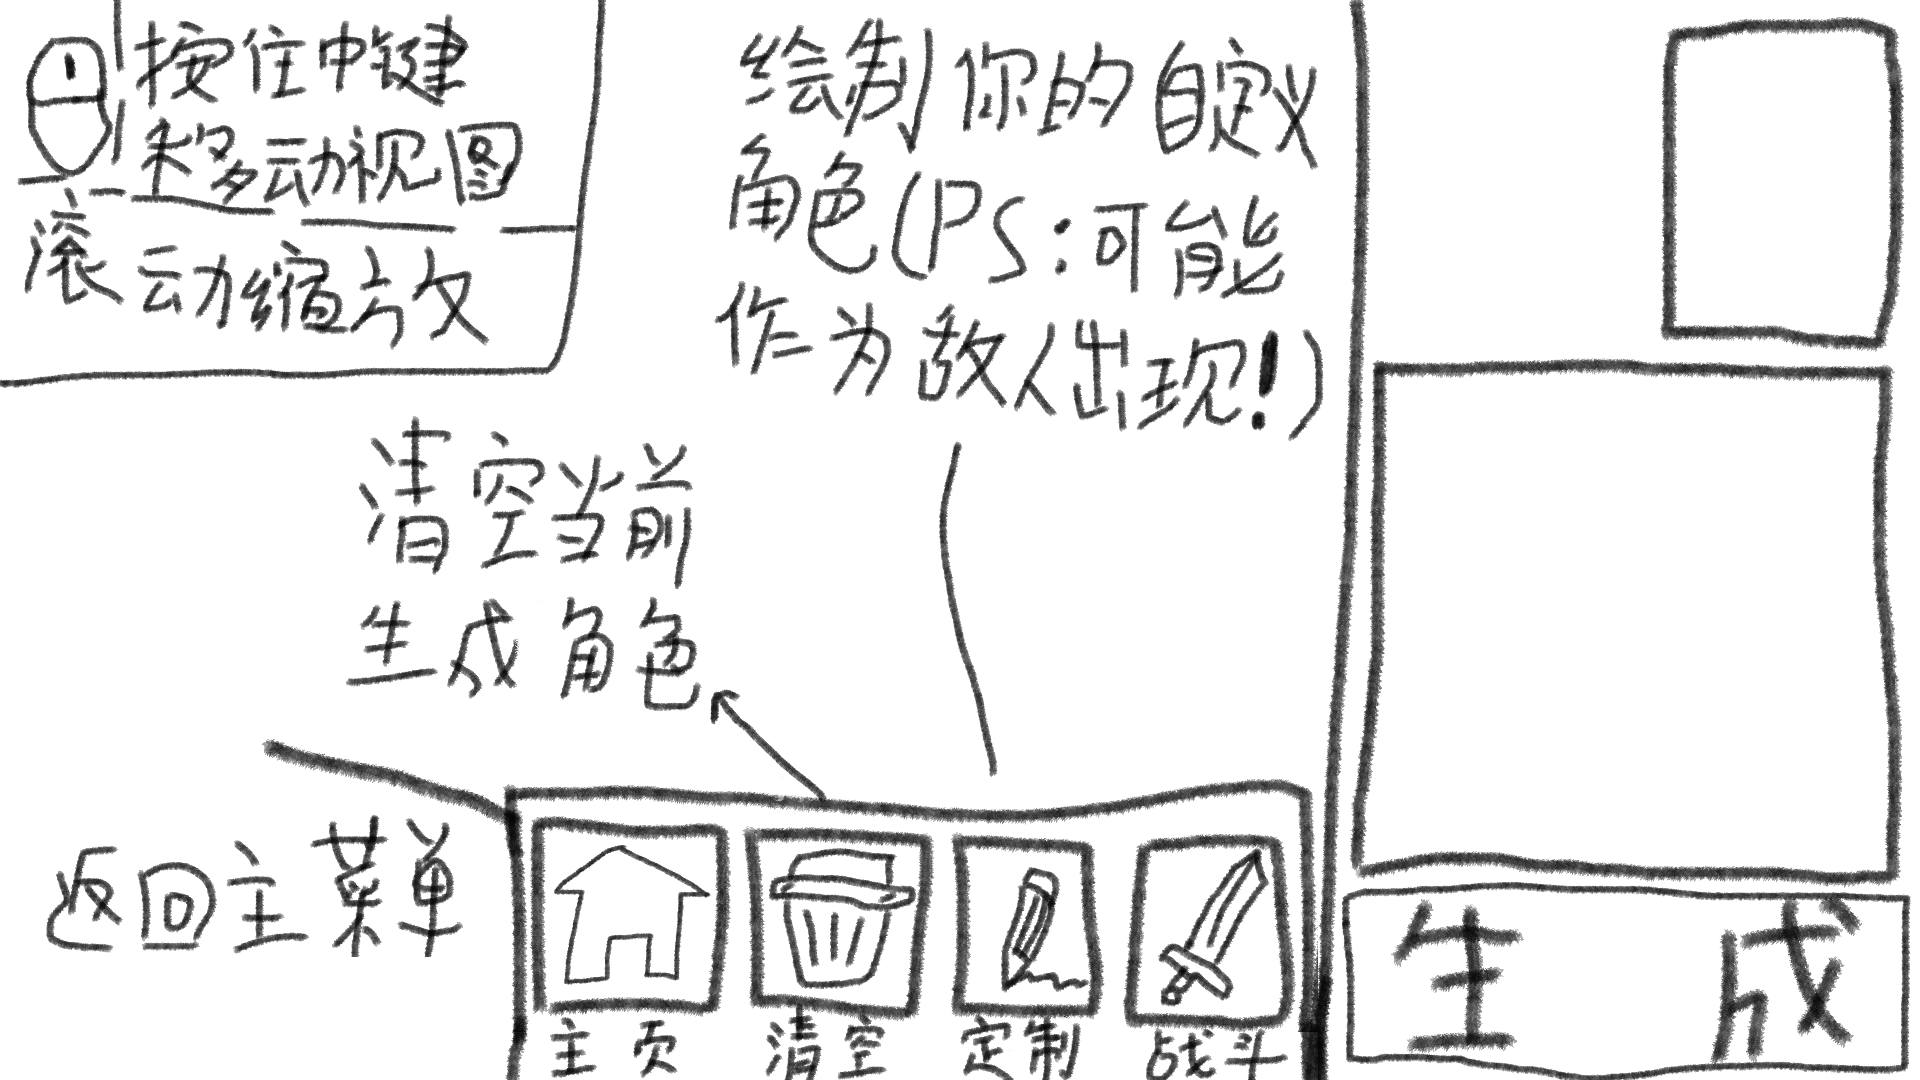 按住中键
移动视图
滚动缩放
绘制你的自定义
角色(PS:可能
作为敌人出现!)
清空当前
生成角色
返回主菜单
主页
清空
定制
战斗
生成